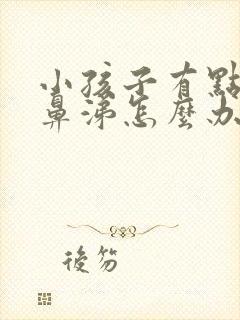 小孩子有點
鼻涕怎麼办
後笏